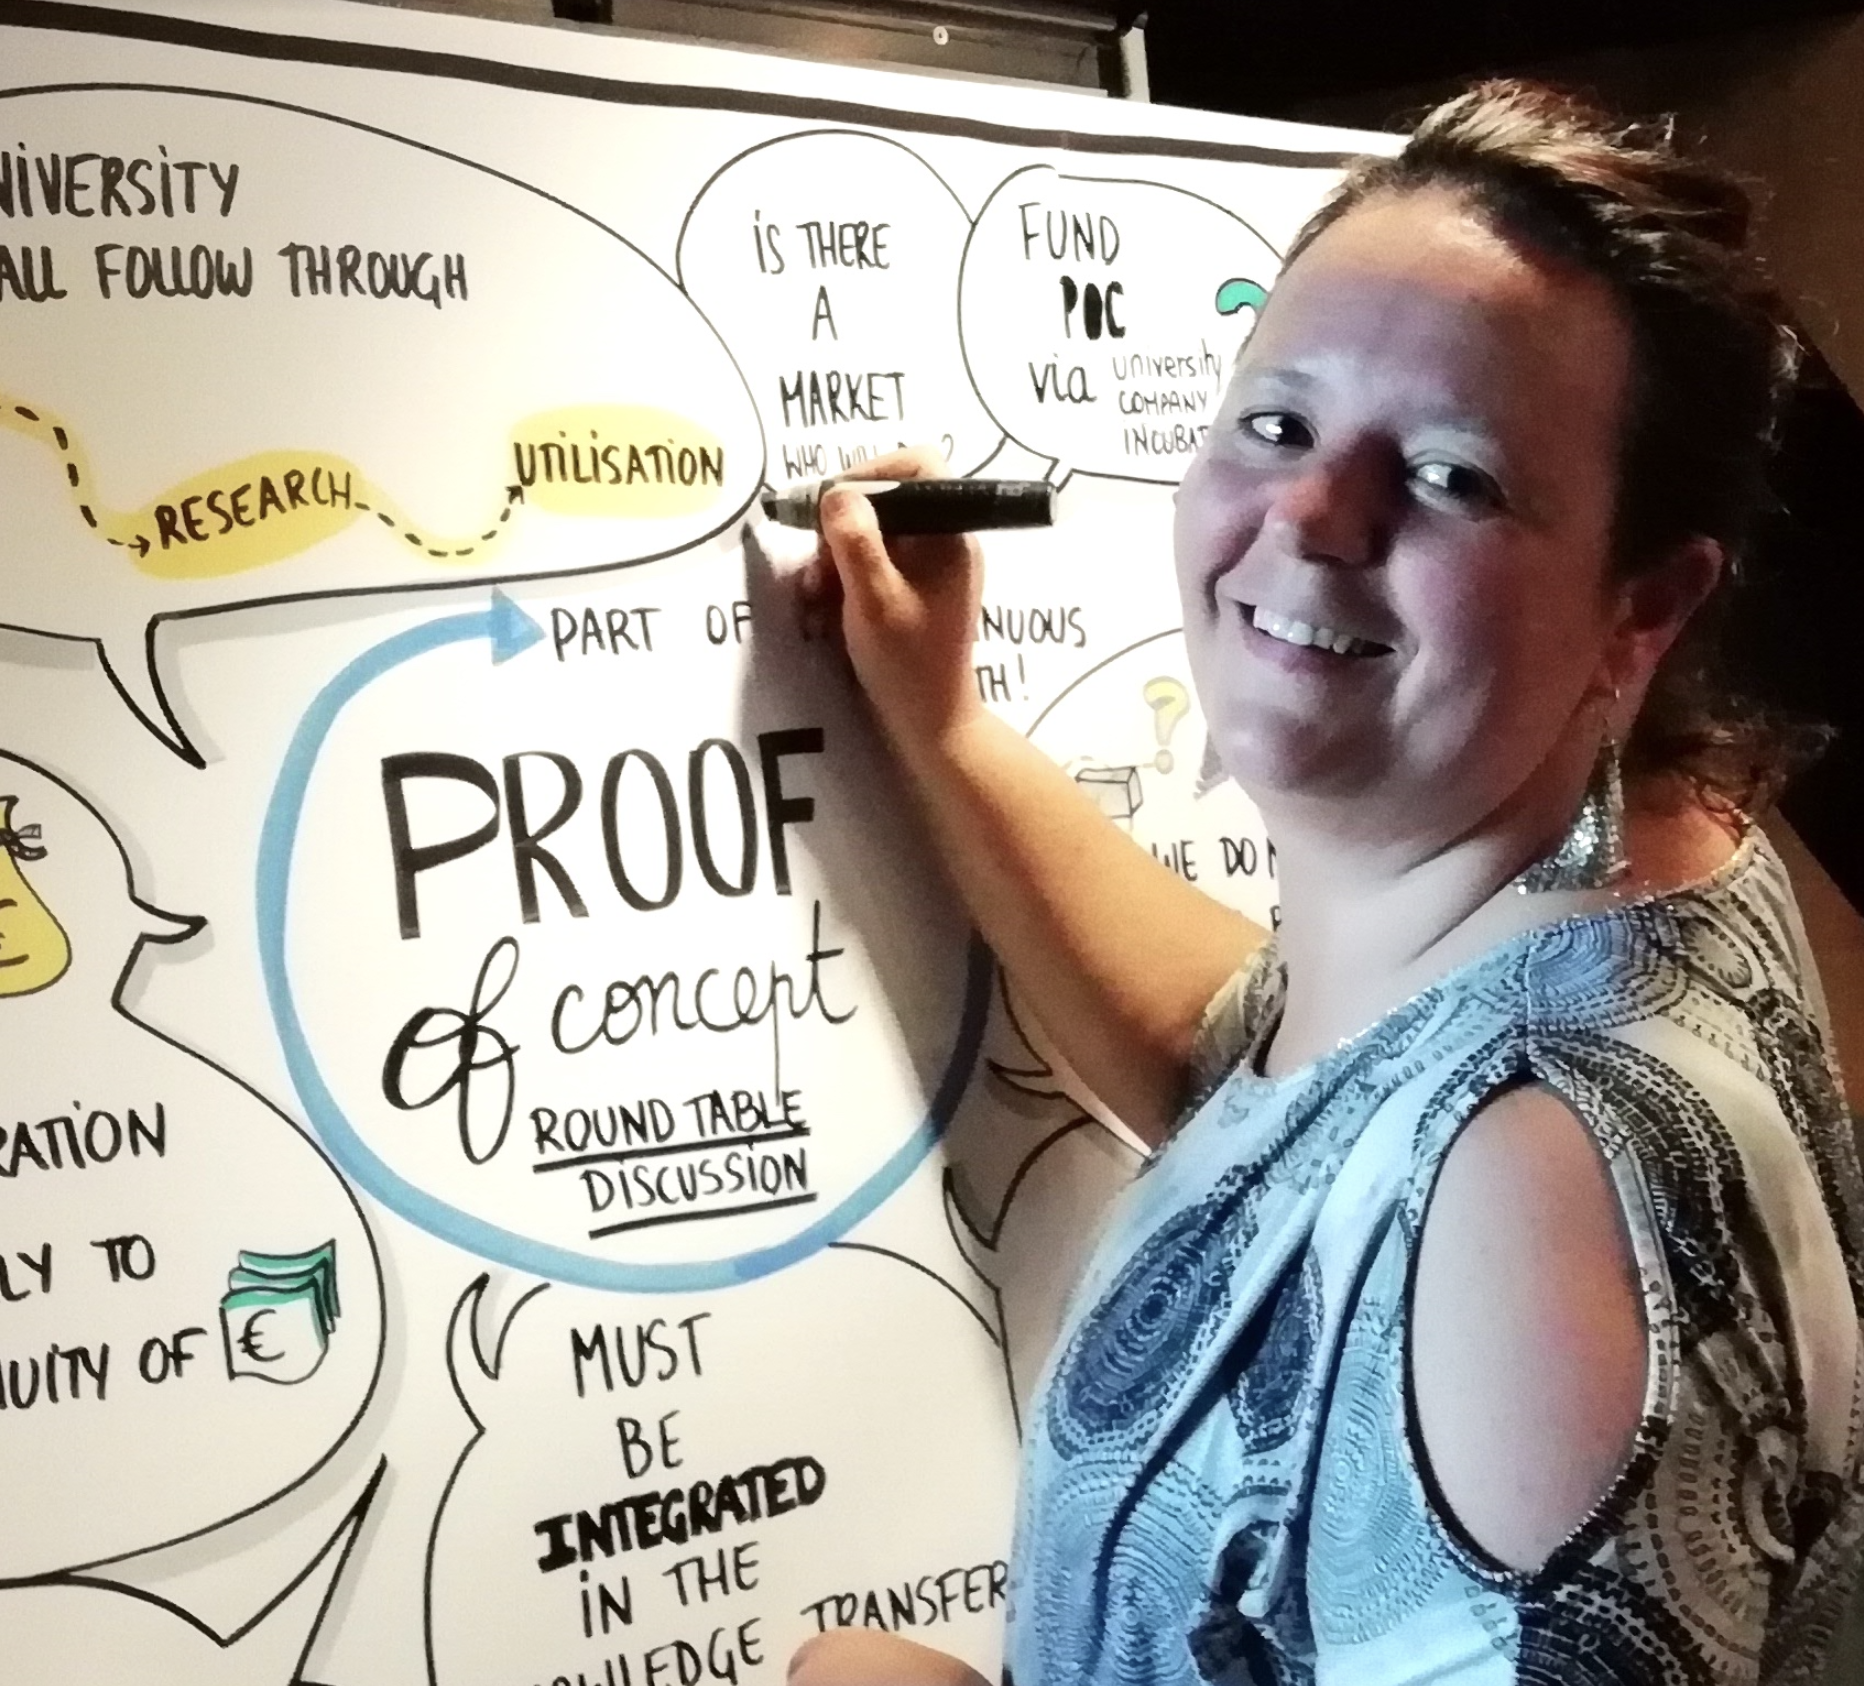 NIVERSITY
ALL FOLLOW THROUGH
RESEARCH
UTILISATION
iS THERE
A
MARKET
WHO
FUND
POC
via UNiversity
COMPANY
INCUBAT
PART OF
NUOUS
TH!
PROOF
of concept
ROUND TABLE
DISCUSSION
WE DO
€
RATION
LY TO
NUITY OF €
MUST
BE
INTEGRATED
iN THE
OWLEDGE TRANSFER